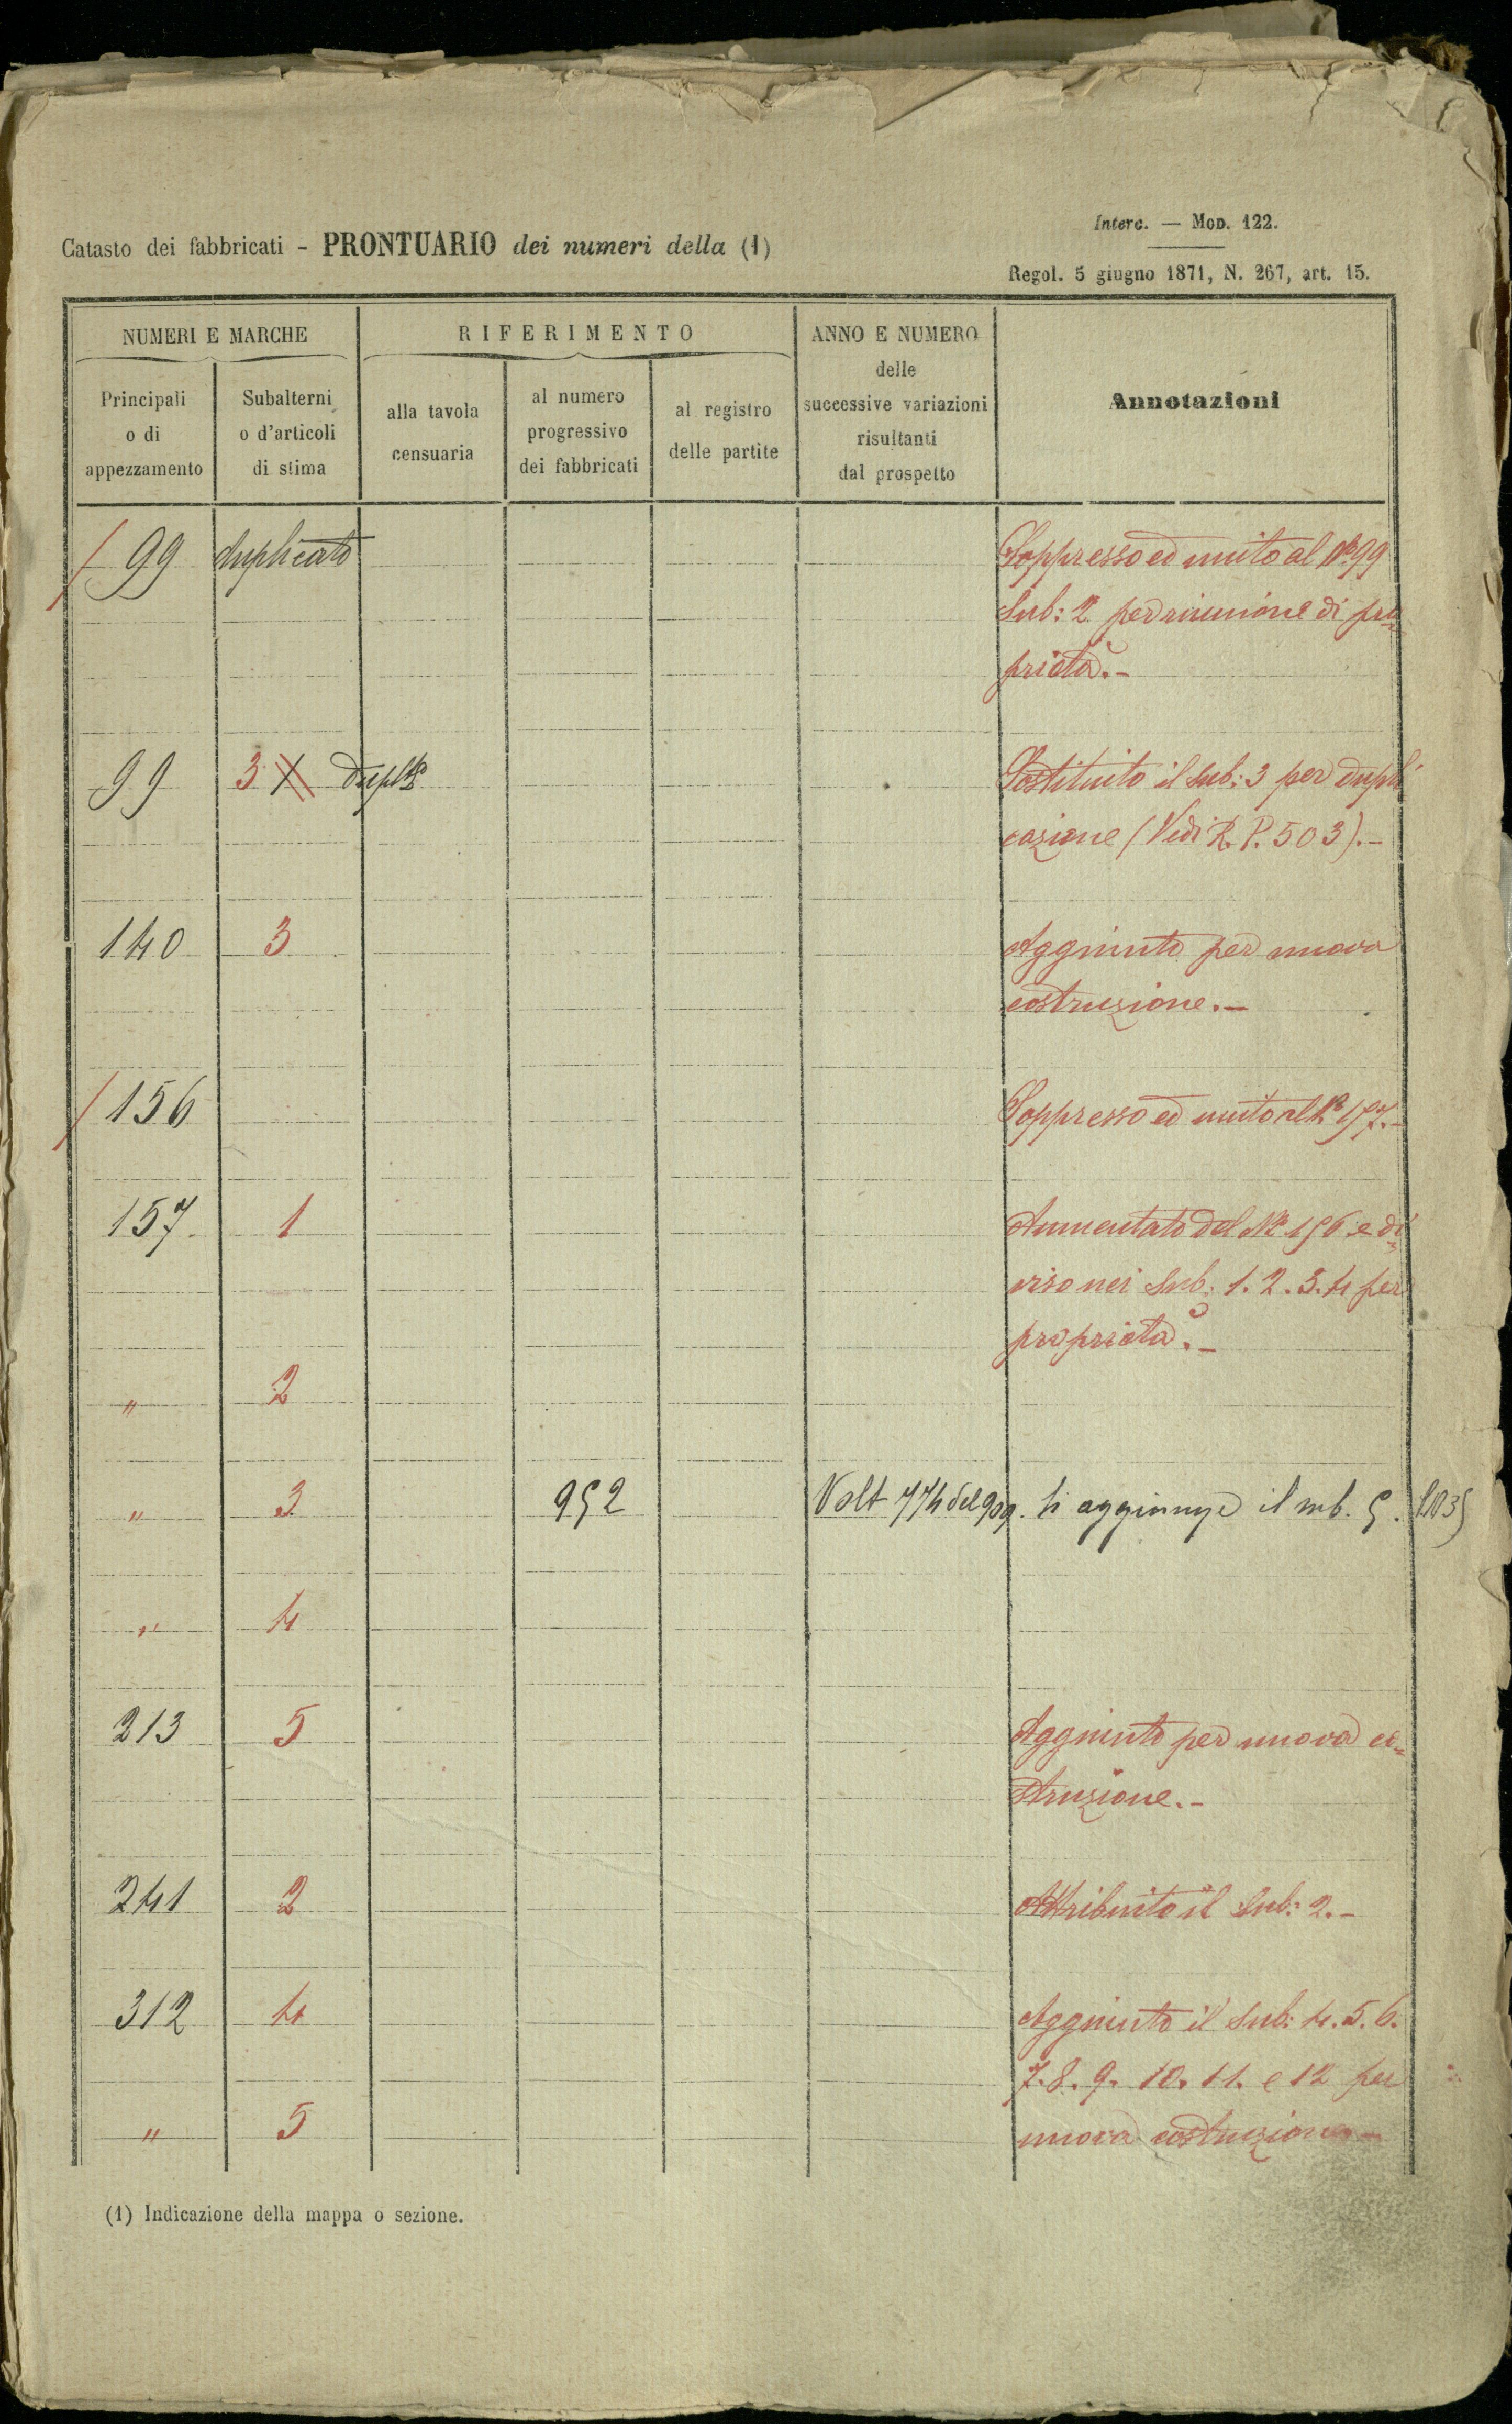 Interc. — Mod. 122.
Catasto dei fabbricati - PRONTUARIO dei numeri della (1)
Regol. 5 giugno 1871, N. 267, art. 15.
NUMERI E MARCHE
RIFERIMENTO
ANNO E NUMERO
delle
successive variazioni
risultanti
dal prospetto
Annotazioni
Principali
o di
appezzamento
Subalterni
o d'articoli
di stima
alla tavola
censuaria
al numero
progressivo
dei fabbricati
al registro
delle partite
/ 99 duplicato Soppresso ed unito al No 99
Sub: 2 per riunione di pro=
prietà.-
99 3 1 duplto Sostituito il sub: 3 per dupli
cazione (Vedi R. P. 503).-
140 3 Aggiunto per nuova
costruzione.-
/ 156 Soppresso ed unito al No 157.-
157 1 Aumentato del No 156 e di=
viso nei Sub: 1. 2. 3. 4 per
proprietà.-
" 2
" 3 952 Volt 774 del 909. Si aggiunge il sub. 5.
" 4
213 5 Aggiunto per nuova co=
struzione.-
241 2 Attribuito il Sub: 2.-
312 4 Aggiunto il Sub: 4. 5. 6.
7. 8. 9. 10. 11. e 12 per
" 5 nuova costruzione.-
(1) Indicazione della mappa o sezione.